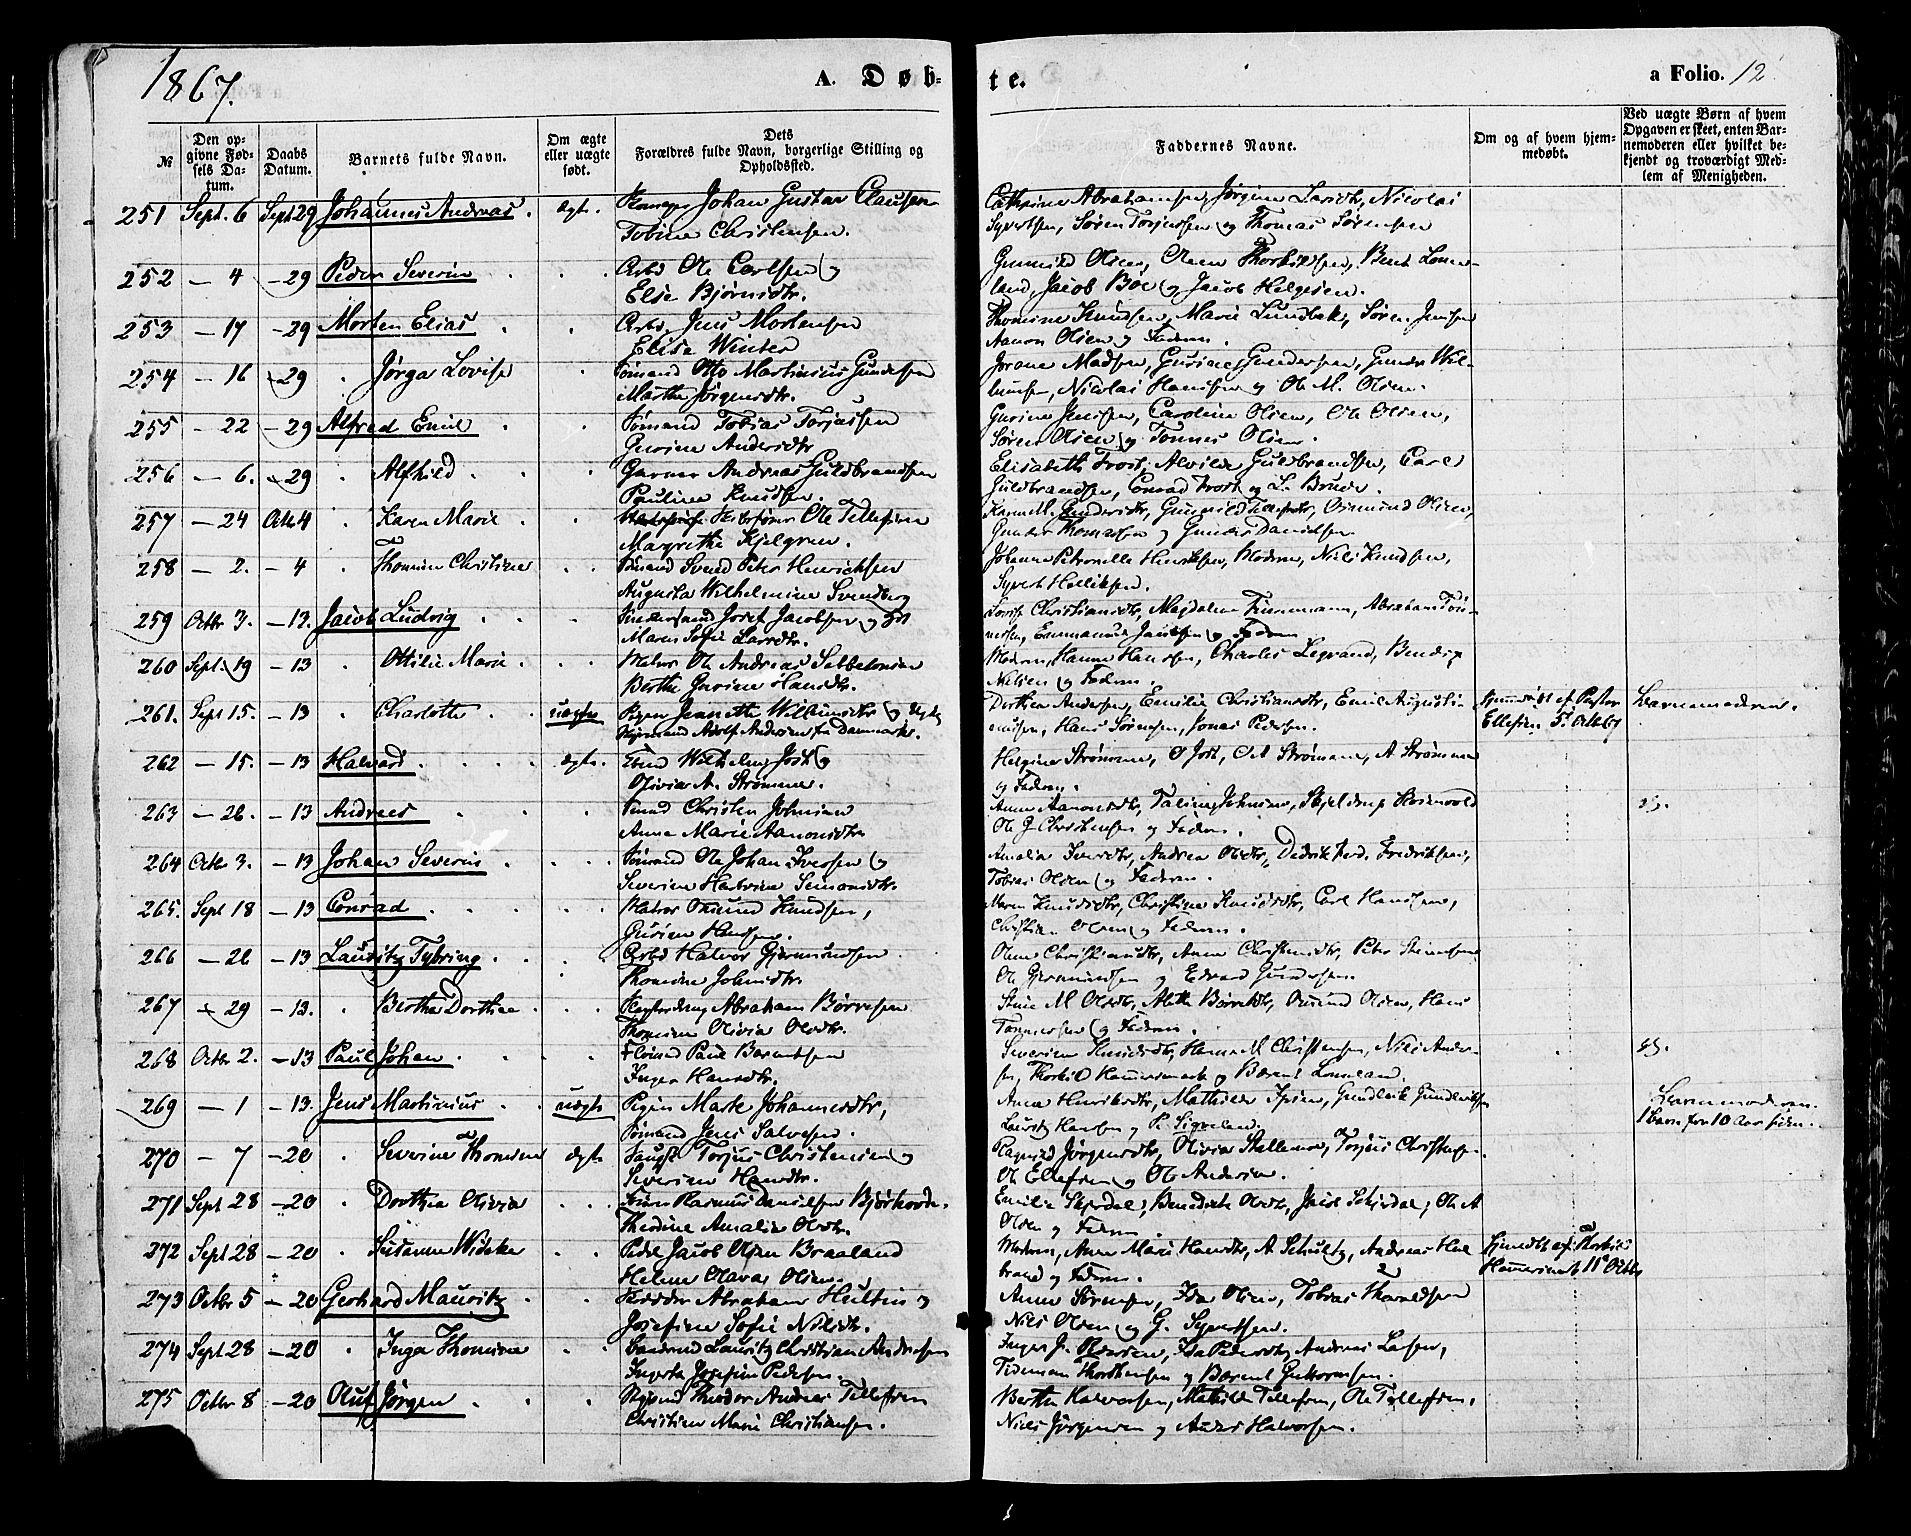 1867.
A. Døb-
te.
a Folio. 12
№
Den opgivne Fødsels Datum.
Daabs Datum.
Barnets fulde Navn.
Om ægte eller uægte født.
Dets Forældres fulde Navn, borgerlige Stilling og Opholdssted.
Faddernes Navne.
Om og af hvem hjemmedøbt.
Ved uægte Børn af hvem Opgaven er skeet, enten Barnemoderen eller hvilket bekjendt og troværdigt Medlem af Menigheden.
251 Sept. 6 Sept 29 Johannes Andreas ægt. Johan Gustav Clausen
Tobine Christensen.
Cathrine Abrahamsen, Jørgine Larsdt, Nicolai
Syvertsen, Søren Torjussen og Thomas Sørensen
252 — 4 — 29 Peder Severin Arbd Ole Carlsen og
Else Bjørnsdtr.
Gunnild Olsen, Thorkildsen, Bent Lonne-
land, Jacob Boe og Jacob Helgesen.
253 — 17 — 29 Morten Elias Arbd. Jens Mortensen
Elise Winter
Thomine Knudsen, Marie Lundbek, Søren Jensen
Aanon Olsen og Faderen.
254 — 16 — 29 Jørga Lovise Sømand Otto Martinius Gundersen
Marthe Jørgensdtr.
Jorane Madsen, Gurine Gundersen, Gunder Wil-
lumsen, Nicolai Hansen og Ole M. Olsen.
255 — 22 — 29 Alfred Emil Sømand Tobias Torjussen
Gurine Andersdtr
Gurine Jensen, Caroline Olsen, Ole Olsen,
Søren Olsen og Tønnes Olsen.
256 — 6. — 29 Alfhild Garver Andreas Guldbrandsen
Pauline Knudsen.
Elisabeth Frost, Alvilde Guldbrandsen, Carl
Guldbrandsen, Conrad Frost og L. Bruun.
257 — 24 Octb 4 Karen Marie Ole Tellefsen
Magrethe Kjelgren.
Karen M. Gundersdtr, Gunnild Osmund Olsen,
Gunder Thomassen og Gunder Danielsen.
258 — 2. — 4 Thomine Christine Sømand Svend Peter Henrichsen
Augusta Wilhelmine Svendberg
Johanne Petronelle Henriksen, Moderen, Niels Knudsen,
Syvert Helliksen.
259 Octbr 3. — 13. Jacob Ludvig Josef Jacobsen og
Maren Sofie Larsdtr.
Lovise Christiansdtr, Magdalene Finnemann, Abraham Tøn-
nessen, Emmanuel Jacobsen og Faderen
260 Sept. 19 — 13 Ottilie Marie Matros Ole Andreas
Berthe Gurine Hansdtr.
Moderen, Hanne Hansen, Charles Legrand, Bendix
Nielsen og Faderen.
261. Sept 15. — 13 Charlotte uægte Pigen Jeanette Wilhelmsdtr og
Adolf Andersen fra Danmark.
Dorthea Andersen, Emilie Christiansdtr, Emil Augusti-
nussen, Hans Sørensen, Jonas Pedersen.
Hjemmedøbt af Pastor
Ellefsen 5. Octb 67
Barnemoderen.
262 — 15. — 13 Halvard ægt. Wilhelm Jost og
Olivia A. Strømme.
Helgine Strømme, O Jost, O A Strømme, A. Strømme
og Faderen.
263 — 26. — 13 Andreas Christen Johnsen
Anne Marie Aanonsdtr
Anne Aanonsdtr, Taline Johnsen, Skjeldrup
Ole G Christensen og Faderen.
264 Octbr 3. — 13 Johan Severin Sømand Ole Johan Iversen og
Severine Hartvine Simonsdtr.
Amalie Iversdtr, Andrea Olsdtr, Diedrik Ferd. Fredriksen,
Tobias Olsen og Faderen.
265. Sept 18 — 13 Conrad Matros Osmund Knudsen,
Gurine Hansen.
Maren Knudsdtr, Christine Knudsdtr, Carl Hansen,
Christian Olsen og Faderen.
266 — 26 — 13 Lauritz Tybring Arbd Halvor Gjermundsen
Thomine Johnsdtr.
Oline Christiansdtr, Anne Christensdtr, Peter
Ole Gjermundsen og Edvard Gundersen.
267 — 29 — 13. Berthe Dorthea Abraham Børresen
Thomine Olivia Olsdtr.
Stine M Olsdtr, Alette Børresdtr, Osmund Olsen, Hans
Tønnessen og Faderen.
268 Octbr 2. — 13 Paul Johan Paul Berentsen
Inger Hansdtr.
Severine Knudsdtr, Hanne M Christensen, Niels Ander-
sen, Thorkild Hammersmark og Bærent Lonneland.
269 — 1 — 13. Jens Martinius uægte Pigen Marte Johannesdtr,
Sømand Jens Salvesen.
Anne Henriksdtr, Mathilde Ipsen, Gundleik Gundleiksen
Lauritz Hansen og P. Sigveland.
Barnemoderen.
1 Barn for 10 Aar siden.
270 — 7 — 20 Severine Thomine ægte Torjus Christensen og
Severine Hansdtr.
Ragnild Jørgensdtr, Olivia Stallemoe, Torjus Christensen
Ole Ellefsen og Ole Andersen.
271 Sept 28 — 20 Dorthea Olivia Rasmus Danielsen Bjørkovdn.
Theodine Amalie Olsdtr.
Emilie Skjerdal, Benedicte Olsdtr, Jacob Schierdal, Ole A
Olsen og Faderen.
272 Sept 28 — 20 Susanne Wibeke Jacob Olsen Braaland
Helene Olava Olsen.
Moderen, Anne Marie Hansdtr, A. Schultz, Andreas Hil
brand og Faderen.
Hjemdøbt af Thorkild
Hammersmark 11 Octbr
273 Octbr 5 — 20 Gerhard Mauritz Abraham Hultin og
Josefine Sofie Nilsdtr.
Anne Sørensen, Ida Olsen, Tobias Thorvaldsen
Niels Olsen og G. Syvertsen.
274 Sept. 28 — 20 Inga Thomine Lauritz Christian Andersen
Ingerta Josefine Pedersen.
Inger J. Pedersen, Ida Pedersdtr, Andreas Larsen,
Tidemann Thorstensen og Bærent Guttormsen.
275 Octbr 8 — 20 Oluf Jørgen Theodor Andreas Tellefsen
Christine Marie Christiansen.
Berthe Halvorsen, Mathilde Tellefsen, Ole Tellefsen,
Niels Jørgensen og Anders Halvorsen.